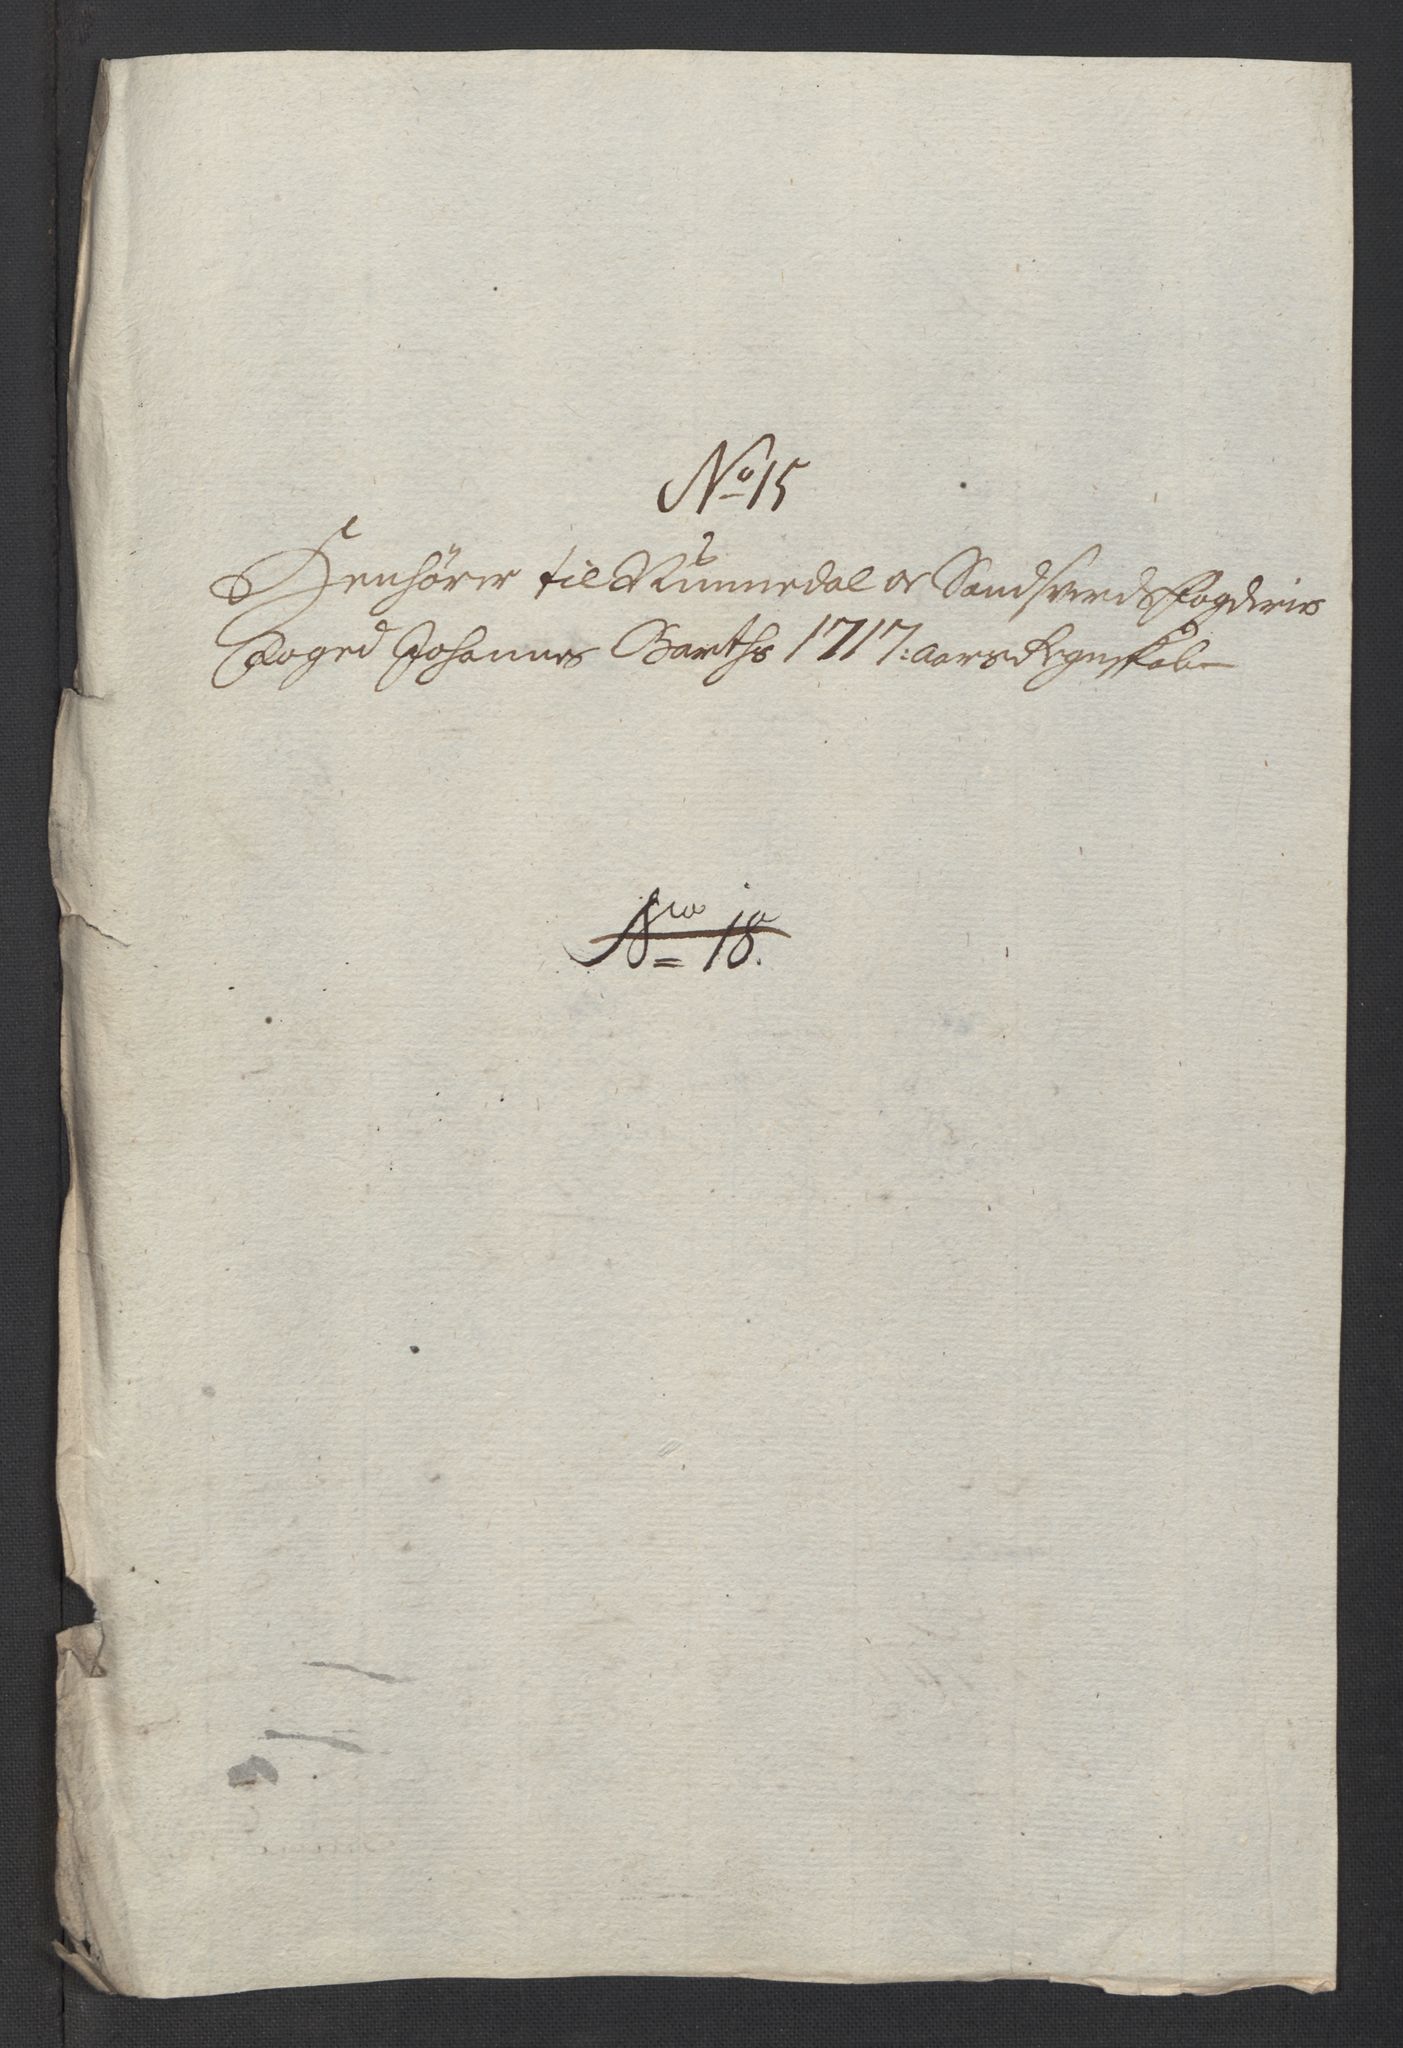 No 15
Henhörer til Nummedal oc Sandsverds Fogderies
Foged Johannes Barths 1717: aars Regenskab
Nro 18.